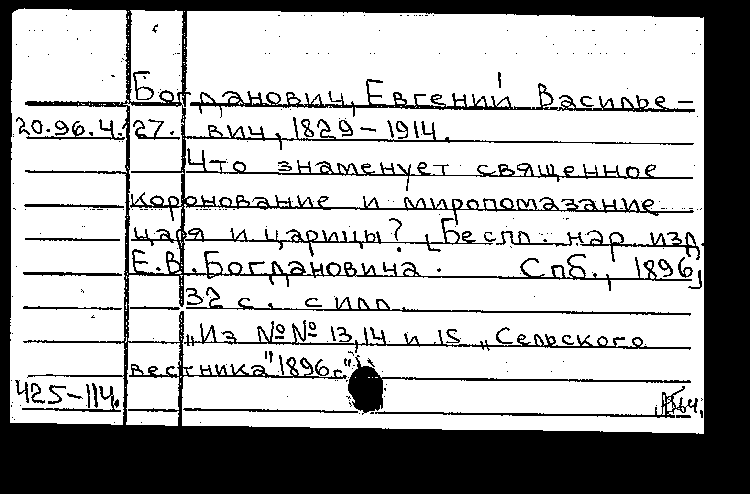 Богданович, Евгений Василье-
20.96.4.27. вич, 1829-1914.
Что знаменует священное
коронование и миропомазание
царя и царицы? [Беспл. нар изд.
Е.В. Богдановича. Спб., 1896]
32 с. с илл.
„Из №№ 13,14 и 15 „Сельского
вестника" 1896г."
425-114.